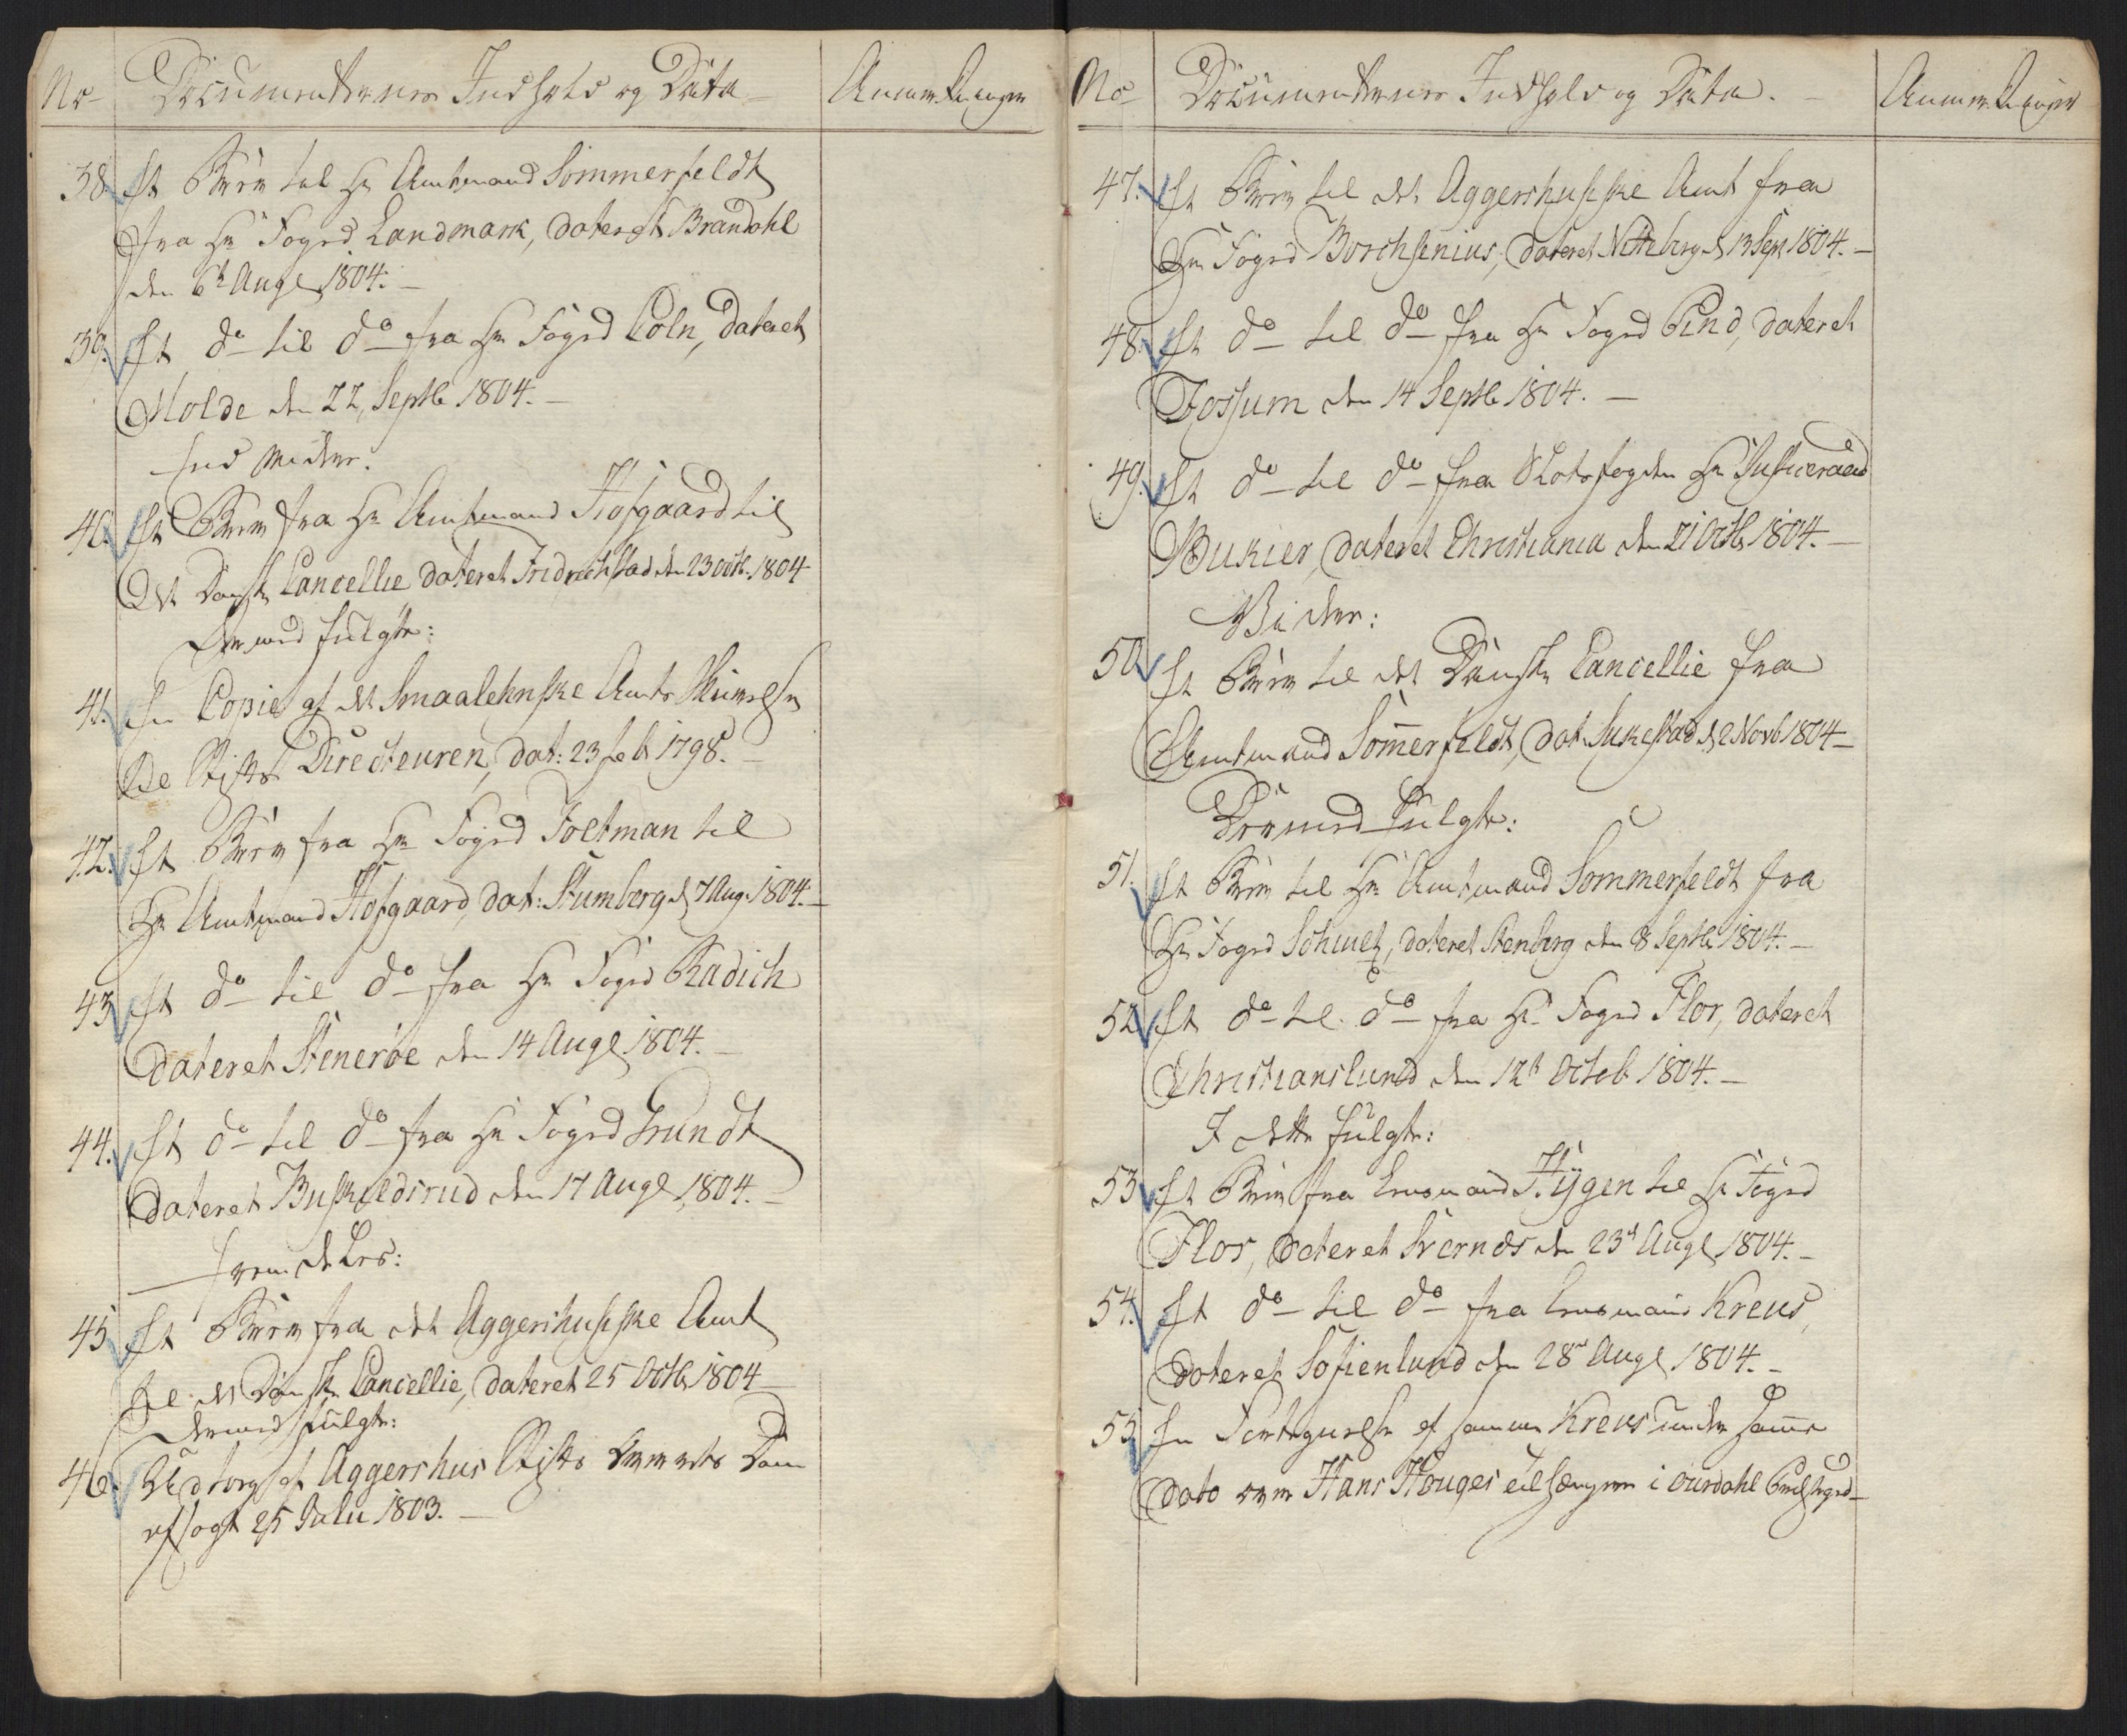 No
Documenternes Indhold og Data
Anmerkninger
38. Et Brev til Hr Amtmand Sommerfeldt
fra Hr Foged Landmark, dateret Brandvhl
den 6t Augl 1804. –
39. Et do – til do – fra Hr Foged Coln, dateret
Molde den 22 Septb 1804. –
End videre.
40. Et Brev fra Hr Amtmand Hofgaard til
Det Danske Cancellie dateret Fridrichstad den 23 octb. 1804
Dermed fulgte:
41. En Copie af det Smaalehnske Amts Skrivelse
til Stifts Directeuren, dat: 23 feb 1798. –
42. Et Brev fra Hr Foged Foltman til
Hr Amtmand Hofgaard, dat: Stumberg d 7 Aug. 1804. –
43 Et do – til do – fra Hr Foged Radich
dateret Stenerøe den 14 Augl 1804. –
44. Et do – til do – fra Hr Foged Grundt
dateret Buskeldsrud den 17 Augl 1804. –
Fremdeles:
45 Et Brev fra det Aggershusiske Amt
til det Danske Cancellie, dateret 25 Octb 1804
Dermed fulgte:
46. Udtog af Aggershus Stifts Overrets Dom
afsagt 25 Julii 1803. –
No
Documenternes Indhold og Data. –
Anmerkninger
47. Et Brev til det Aggershusiske Amt fra
Hr Foged Borchsenius, dateret Nitteberg d 13 Sept 1804. –
48. Et do – til do – fra Hr Foged Bind, dateret
Fossum den 14 Septb 1804. –
49. Et do – til do – fra Slotsfogden Hr Justiceraad
Bukier, dateret Christiania den 21 Octb 1804. –
Videre:
50. Et Brev til det Danske Cancellie fra
Amtmand Sommerfeldt, dat. Sukestad d 2 Novb 1804 –
Dermed fulgte:
51. Et Brev til Hr Amtmand Sommerfeldt fra
Hr Foged Schmet, dateret Stenberg den 8 Septb 1804. –
52. Et do – til do – fra Hr Foged Flor, dateret
Christianslund den 12t Octob 1804. –
I dette fulgte:
53 Et Brev fra Lensmand Hygen til Hr Foged
Flor, dateret Svernæs den 23d Augl 1804. –
54. Et do – til do – fra Lensmand Kreus,
dateret Sofienlund den 28d Augl 1804. –
55 En Fortegnelse af samme Kreus under samme
Dato over Hans Houges tilhængere i ourdahl Præstegield –